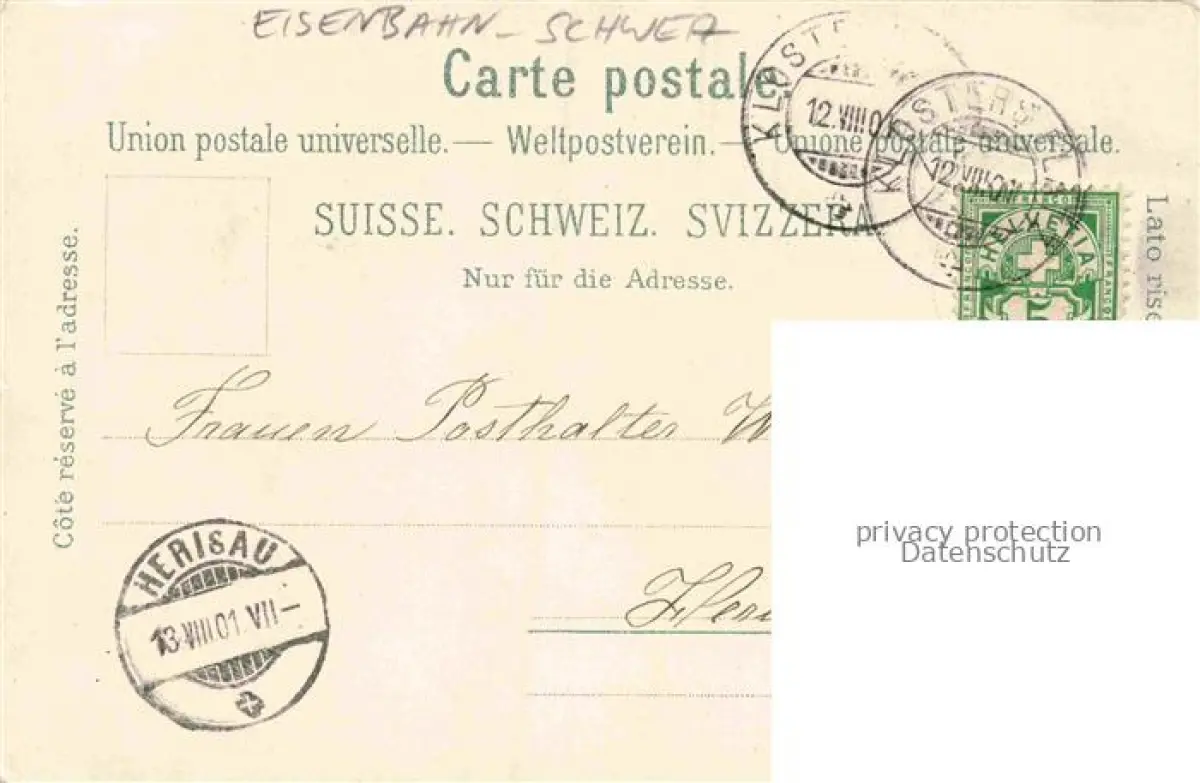 EISENBAHN - SCHWEIZ
Carte postale.
Union postale universelle. — Weltpostverein. — Unione postale universale.
SUISSE. SCHWEIZ. SVIZZERA.
Nur für die Adresse.
Côté réservé à l'adresse.
Lato rise
KLOSTE
12.VIII.0
KLOSTERS
12.VIII.01
FRANCO
HELVETIA
FRANCO
5
Frauen Posthalter W
Heri
HERISAU
13.VIII.01 VII-
privacy protection
Datenschutz